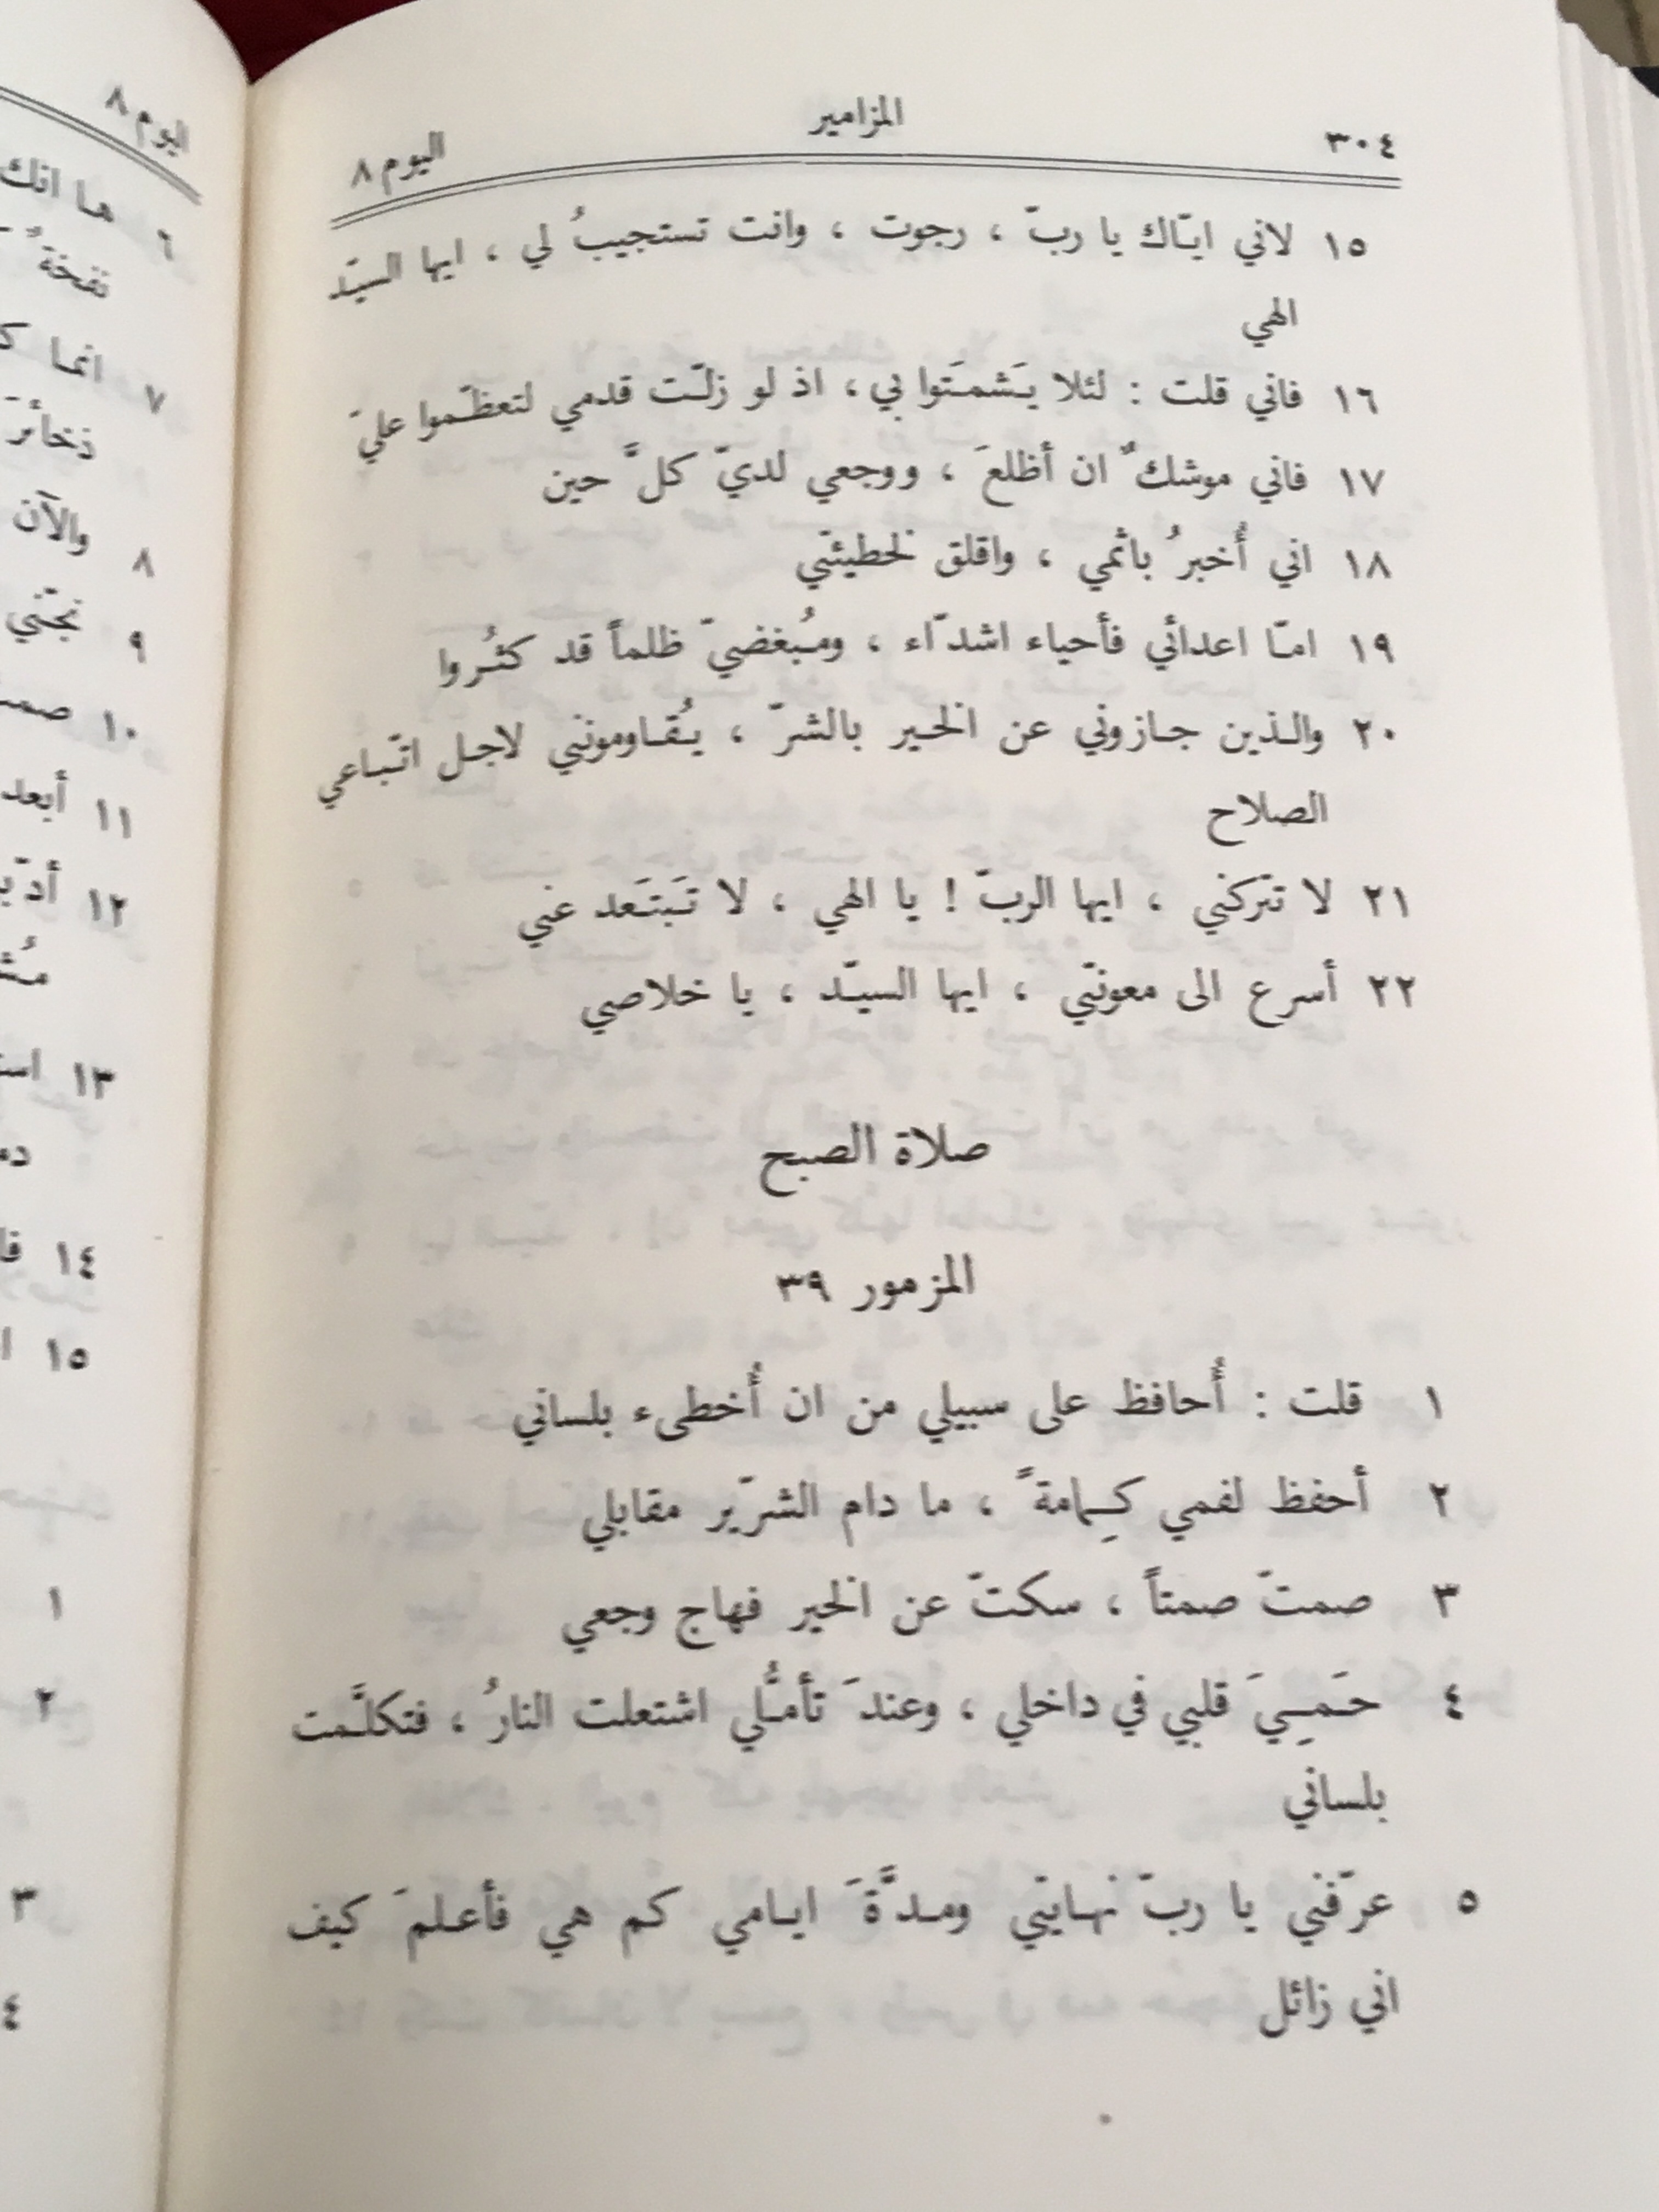 ٣٠٤ المزامير اليوم ٨
١٥ لاني ايّاك يا ربّ ، رجوت ، وانت تستجيبُ لي ، ايها السيّد
الهي
١٦ فاني قلت : لئلا يَشمَتوا بي ، اذ لو زلّت قدمي لتعظّموا عليَّ
١٧ فاني موشكٌ ان أظلعَ ، ووجعي لديّ كلَّ حين
١٨ اني أُخبرُ باثمي ، واقلق لخطيئتي
١٩ امّا اعدائي فأحياء اشدّاء ، ومُبغضيّ ظلماً قد كثُروا
٢٠ والذين جازوني عن الخير بالشرّ ، يُقاومونني لاجل اتّباعي
الصلاح
٢١ لا تتركني ، ايها الربّ ! يا الهي ، لا تَبتَعد عني
٢٢ أسرع الى معونتي ، ايها السيّد ، يا خلاصي
صلاة الصبح
المزمور ٣٩
١ قلت : أُحافظ على سبيلي من ان أُخطىء بلساني
٢ أحفظ لفمي كِمامةً ، ما دام الشرّير مقابلي
٣ صمتّ صمتاً ، سكتّ عن الخير فهاج وجعي
٤ حَمِيَ قلبي في داخلي ، وعندَ تأمُّلي اشتعلت النارُ ، فتكلَّمت
بلساني
٥ عرّفني يا ربّ نهايتي ومدَّةَ ايامي كم هي فأعلمَ كيف
اني زائل
اليوم ٨
٦ ها انك
نفخةٌ
٧ انما
ذخائرَ
٨ والآن
٩ نجّني
١٠
١١ أبعد
١٢
١٣
١٤
١٥
١
٢
٣
٤